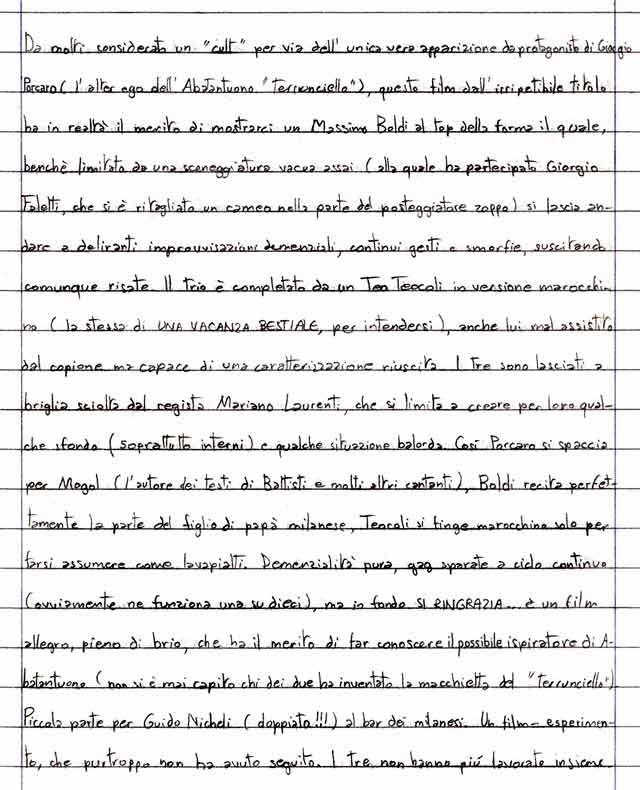 Da molti considerato un "cult" per via dell' unica vera apparizione da protagonista di Giorgio
Porcaro (l'alter ego dell'Abatantuono "terrunciello"), questo film dall'irripetibile titolo
ha in realtà il merito di mostrarci un Massimo Boldi al top della forma il quale,
benchè limitato da una sceneggiatura vacua assai (alla quale ha partecipato Giorgio
Faletti, che si è ritagliato un cameo nella parte del posteggiatore zoppo) si lascia an-
dare a deliranti improvvisazioni demenziali, continui gesti e smorfie, suscitando
comunque risate. Il trio è completato da un Teo Teocoli in versione marocchi-
no (la stessa di UNA VACANZA BESTIALE, per intendersi), anche lui mal assistito
dal copione ma capace di una caratterizzazione riuscita. I tre sono lasciati a
briglia sciolta dal regista Mariano Laurenti, che si limita a creare per loro qual-
che sfondo (soprattutto interni) e qualche situazione balorda. Così Porcaro si spaccia
per Mogol (l'autore dei testi di Battisti e molti altri cantanti), Boldi recita perfet-
tamente la parte del figlio di papà milanese, Teocoli si finge marocchino solo per
farsi assumere come lavapiatti. Demenzialità pura, gag sparate a ciclo continuo
(ovviamente ne funziona una su dieci), ma in fondo SI RINGRAZIA... è un film
allegro, pieno di brio, che ha il merito di far conoscere il possibile ispiratore di A-
batantuono (non si è mai capito chi dei due ha inventato la macchietta del "terrunciello")
Piccola parte per Guido Nicheli (doppiato!!!) al bar dei milanesi. Un film-esperimen-
to, che purtroppo non ha avuto seguito. I tre non hanno più lavorato insieme.